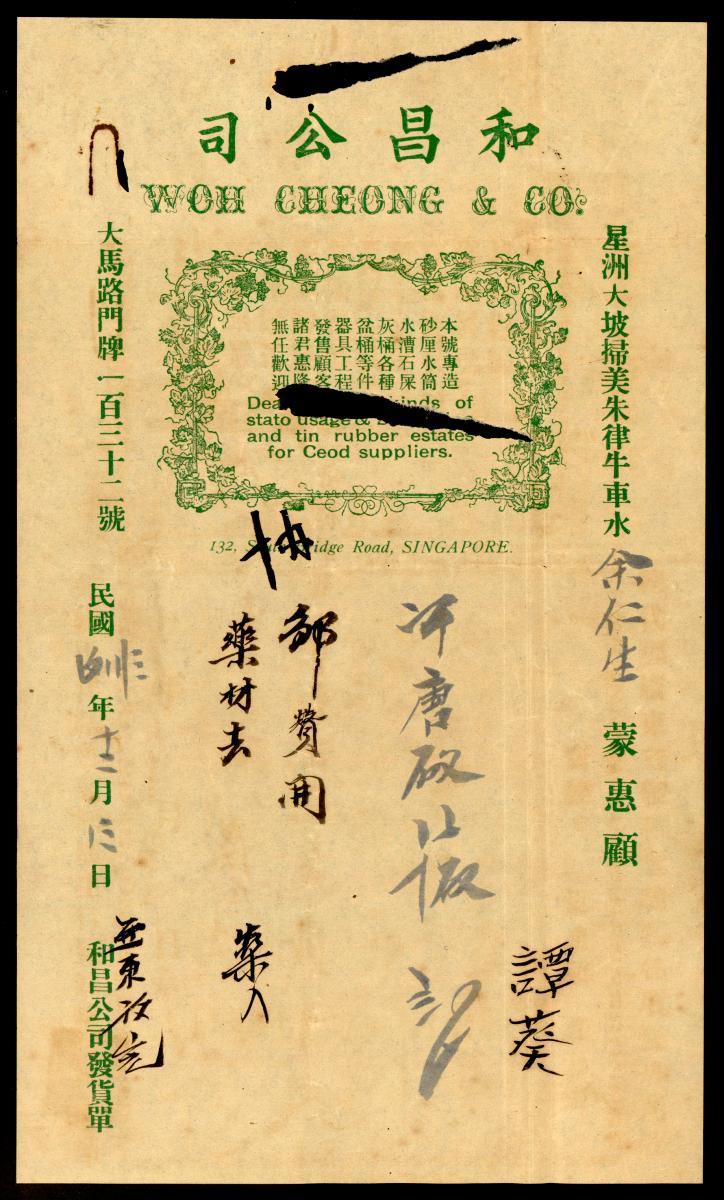 和昌公司
WOH CHEONG & CO.
星洲大坡掃美朱律牛車水
余仁生 蒙惠顧
本號專造
砂厘水筒
水漕石屎
灰桶各種
盆桶等件
器具工程
發售顧客
諸君惠隆
無任歡迎
Dea kinds of
stato usage &
and tin rubber estates
for Ceod suppliers.
132, idge Road, SINGAPORE.
譚葵
唐
部費開
藥材去
藥入
大馬路門牌一百三十二號
民國 年十二月 日
和昌公司發貨單